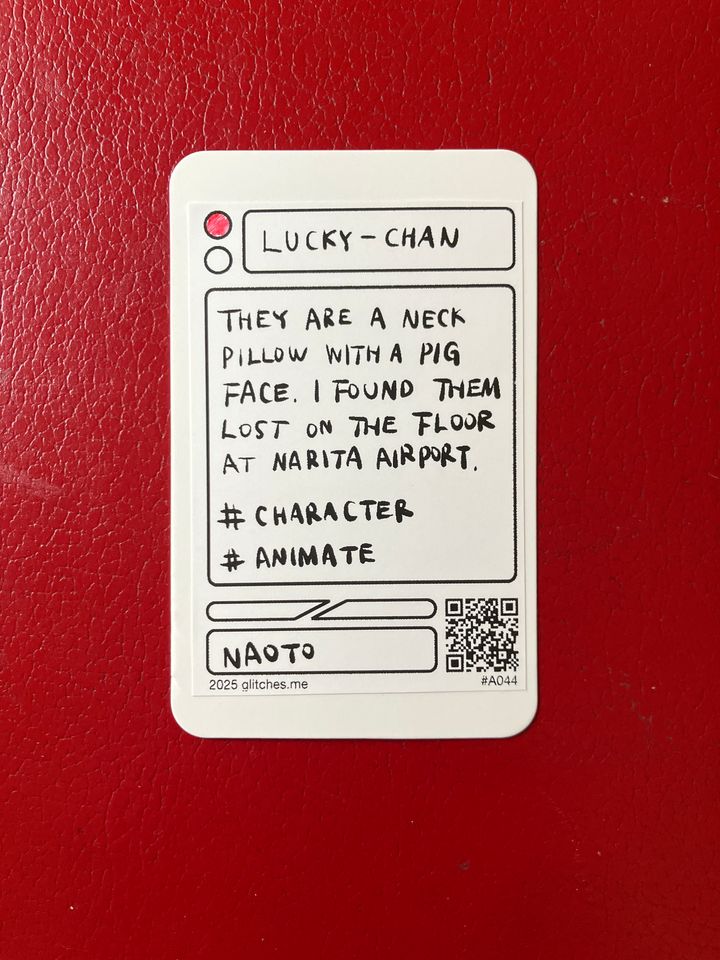 LUCKY-CHAN
THEY ARE A NECK
PILLOW WITH A PIG
FACE. I FOUND THEM
LOST ON THE FLOOR
AT NARITA AIRPORT.
# CHARACTER
# ANIMATE
NAOTO
2025 glitches.me
#A044